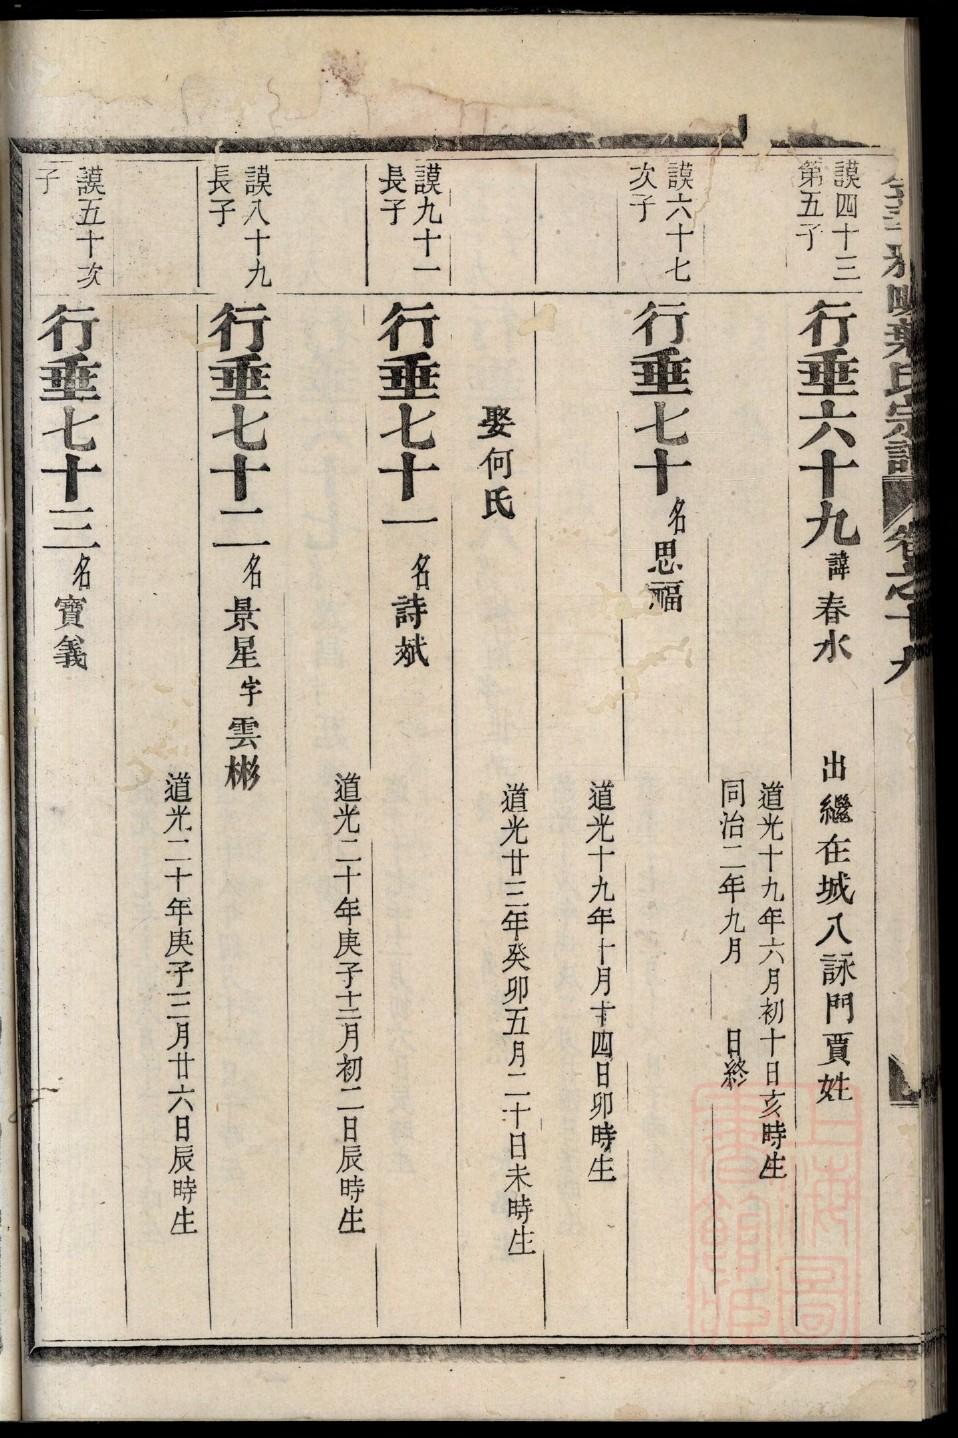 葉氏宗譜
卷之十九
謨四十三
第五子
行垂六十九 諱春水
出繼在城八詠門賈姓
道光十九年六月初十日亥時生
同治二年九月 日終
謨六十七
次子
行垂七十 名思福
道光十九年十月十四日卯時生
娶何氏
道光廿三年癸卯五月二十日未時生
謨九十一
長子
行垂七十一 名詩斌
道光二十年庚子十二月初二日辰時生
謨八十九
長子
行垂七十二 名景星字雲彬
道光二十年庚子三月廿六日辰時生
謨五十次
子
行垂七十三 名寶義
上海圖
書館藏